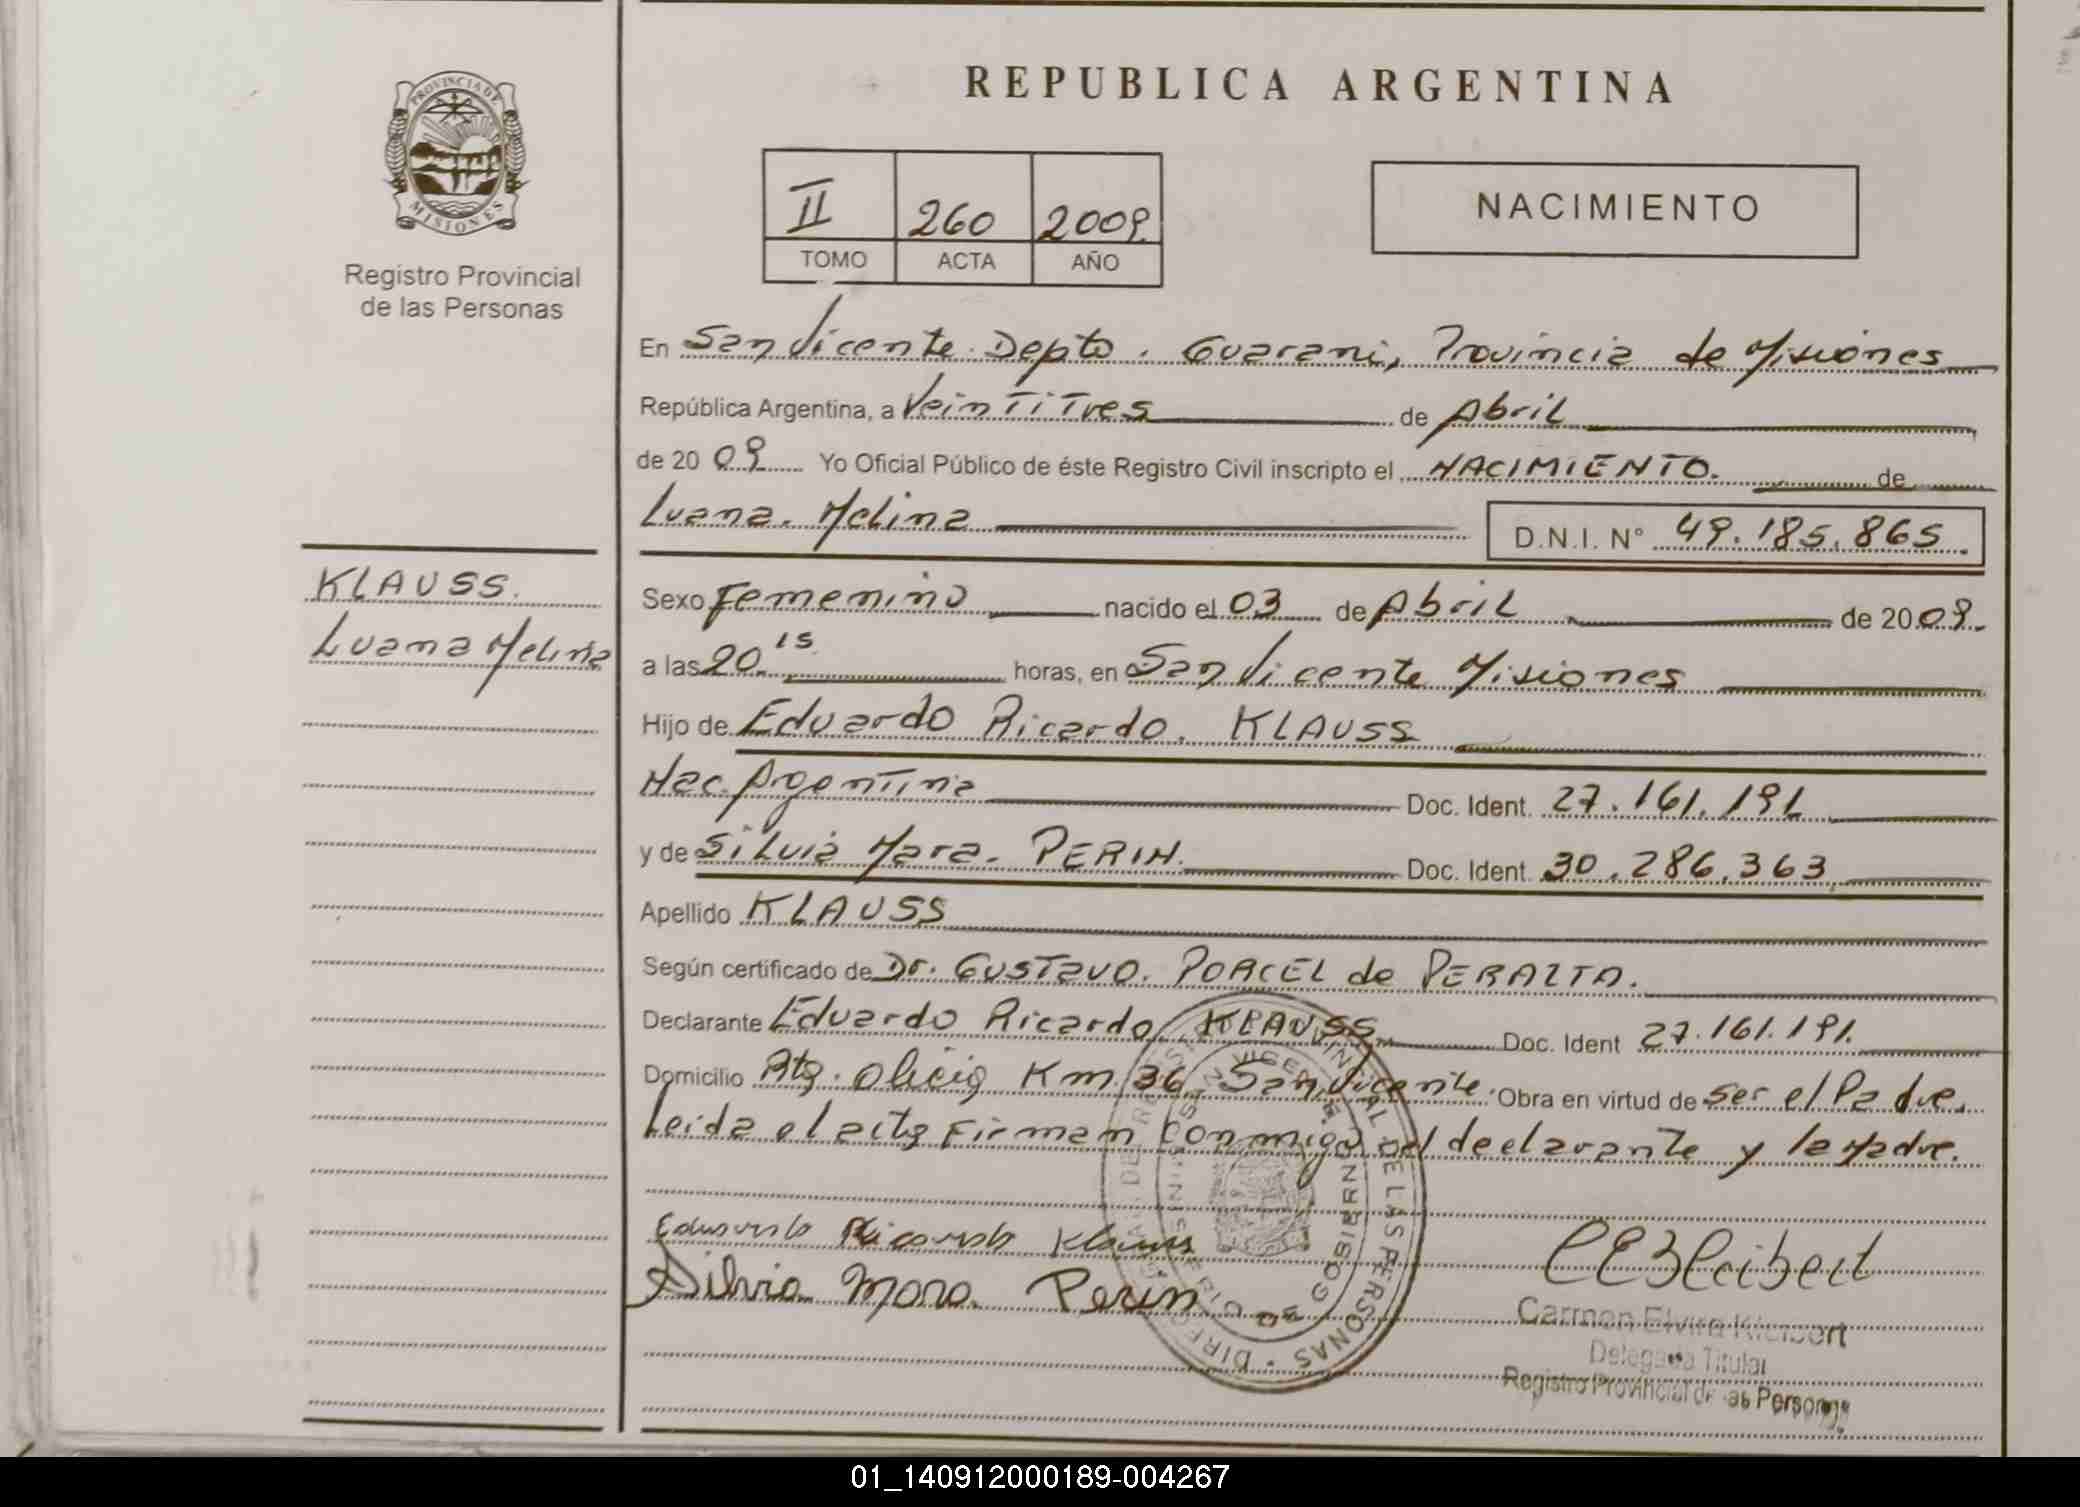 PROVINCIA DE
MISIONES
Registro Provincial
de las Personas
KLAUSS.
Luana Melina
REPUBLICA ARGENTINA
II 260 2009.
TOMO ACTA AÑO
NACIMIENTO
En San Vicente Depto. Guarani, Provincia de Misiones
República Argentina, a Veintitres de Abril
de 20 09 Yo Oficial Público de éste Registro Civil inscripto el NACIMIENTO. de
Luana. Melina D.N.I. N° 49.185.865.
Sexo Femenino nacido el 03 de Abril de 20 09.
a las 20.15 horas, en San Vicente Misiones
Hijo de Eduardo Ricardo. KLAUSS
Nac. Argentina Doc. Ident. 27.161.191
y de Silvia Mara. PERIN. Doc. Ident. 30.286.363
Apellido KLAUSS
Según certificado de Dr. GUSTAVO. PORCEL de PERALTA.
Declarante Eduardo Ricardo KLAUSS Doc. Ident 27.161.191.
Domicilio Km 36 San Vicente. Obra en virtud de ser el Padre.
Leida el acta Firman conmigo el declarante y la Madre.
Eduardo Ricardo Klauss
Silvia Mara Perin
Carmen Elvira Kleibert
Delegada Titular
Registro Provincial de las Personas
01_140912000189-004267